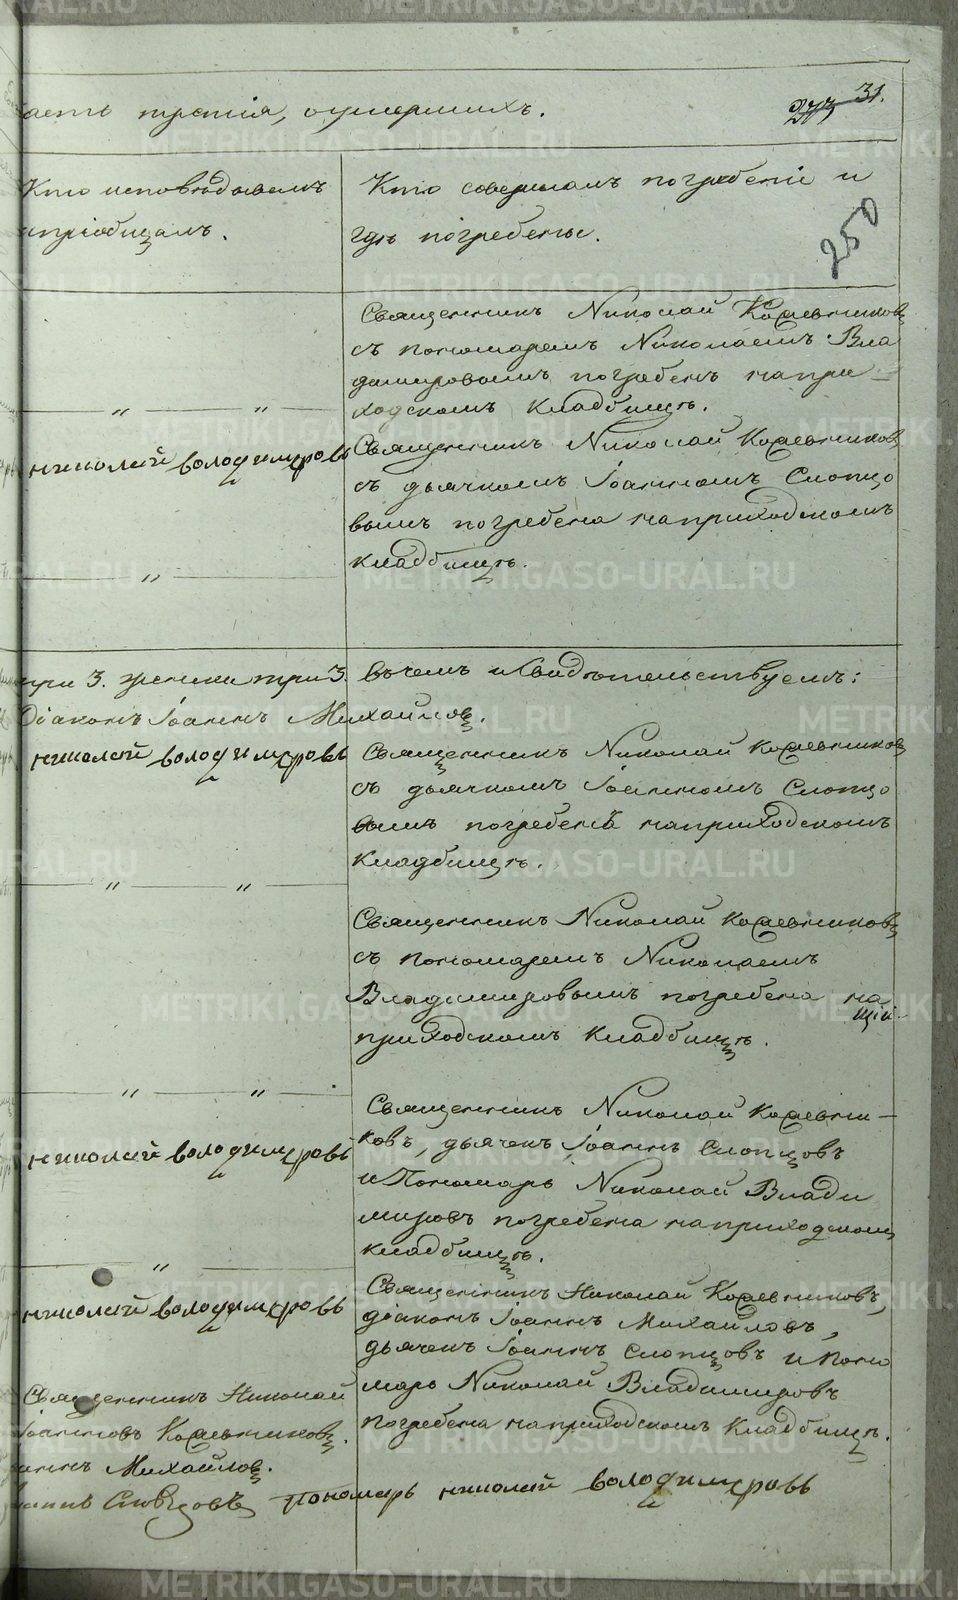 асть третія, о умершихъ.
273 31.
250
Кто исповѣдывалъ
и пріобщалъ.
Кто совершалъ погребеніе и
гдѣ погребены.
Священникъ Николай Кожевниковъ
съ пономаремъ Николаемъ Вла
димировымъ погребенъ на при-
ходскомъ кладбищѣ.
николай володимѣровъ
Священникъ Николай Кожевниковъ
съ дьячкомъ Іоанномъ Слопцо
вымъ погребена на приходскомъ
кладбищѣ.
при 3. три 3. въ чемъ и свидѣтельствуемъ:
Діаконъ Іоаннъ Михайловъ.
николай володимѣровъ
Священникъ Николай Кожевниковъ
съ дьячкомъ Іоанномъ Слопцо
вымъ погребенъ на приходскомъ
кладбищѣ.
Священникъ Николай Кожевниковъ
съ пономаремъ Николаемъ
Владимировымъ погребена на
приходскомъ кладбищѣ.
николай володимѣровъ
Священникъ Николай Кожевни-
ковъ, дьячекъ Іоаннъ Слопцовъ
и Пономарь Николай Влади
мировъ погребена на приходском
кладбищѣ.
николай володимѣровъ
Священникъ Николай Кожевниковъ,
діаконъ Іоаннъ Михайловъ,
дьячекъ Іоаннъ Слопцовъ и поно
марь Николай Владимировъ
погребена на приходскомъ кладбищѣ.
Священникъ Николай
Іоанновъ Кожевниковъ.
аннъ Михайловъ.
аннъ Слопцовъ пономарь николай володимѣровъ
METRIKI.GASO-URAL.RU